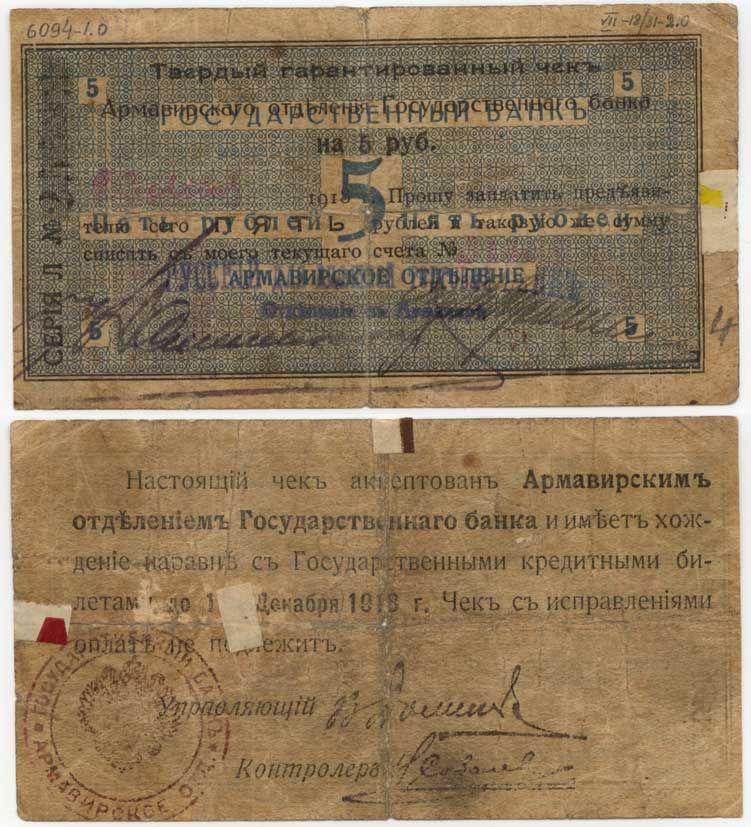 6094-1.0
VII-18/31-2.0
Твердый гарантированный чекъ
5 5
Армавирскаго отдѣленія Государственнаго банка
ГОСУДАРСТВЕННЫЙ БАНКЪ
на 5 руб.
5
1918 г. Прошу заплатить предъяви-
Пять рублей Пять рублей
телю сего ПЯТЬ рублей и таковую же сумму
списать съ моего текущаго счета №
АРМАВИРСКОЕ ОТДѢЛЕНІЕ
Отдѣленіе въ Армавирѣ
5 5
4
СЕРІЯ Л №
Настоящій чекъ акцептованъ Армавирскимъ
отдѣленіемъ Государственнаго банка и имѣетъ хож-
деніе наравнѣ съ Государственными кредитными би-
летами до 1 Декабря 1918 г. Чекъ съ исправленіями
оплатѣ не подлежитъ.
Управляющій
Контролеръ
ГОСУДАРСТВЕННЫЙ БАНКЪ
АРМАВИРСКОЕ ОТД.